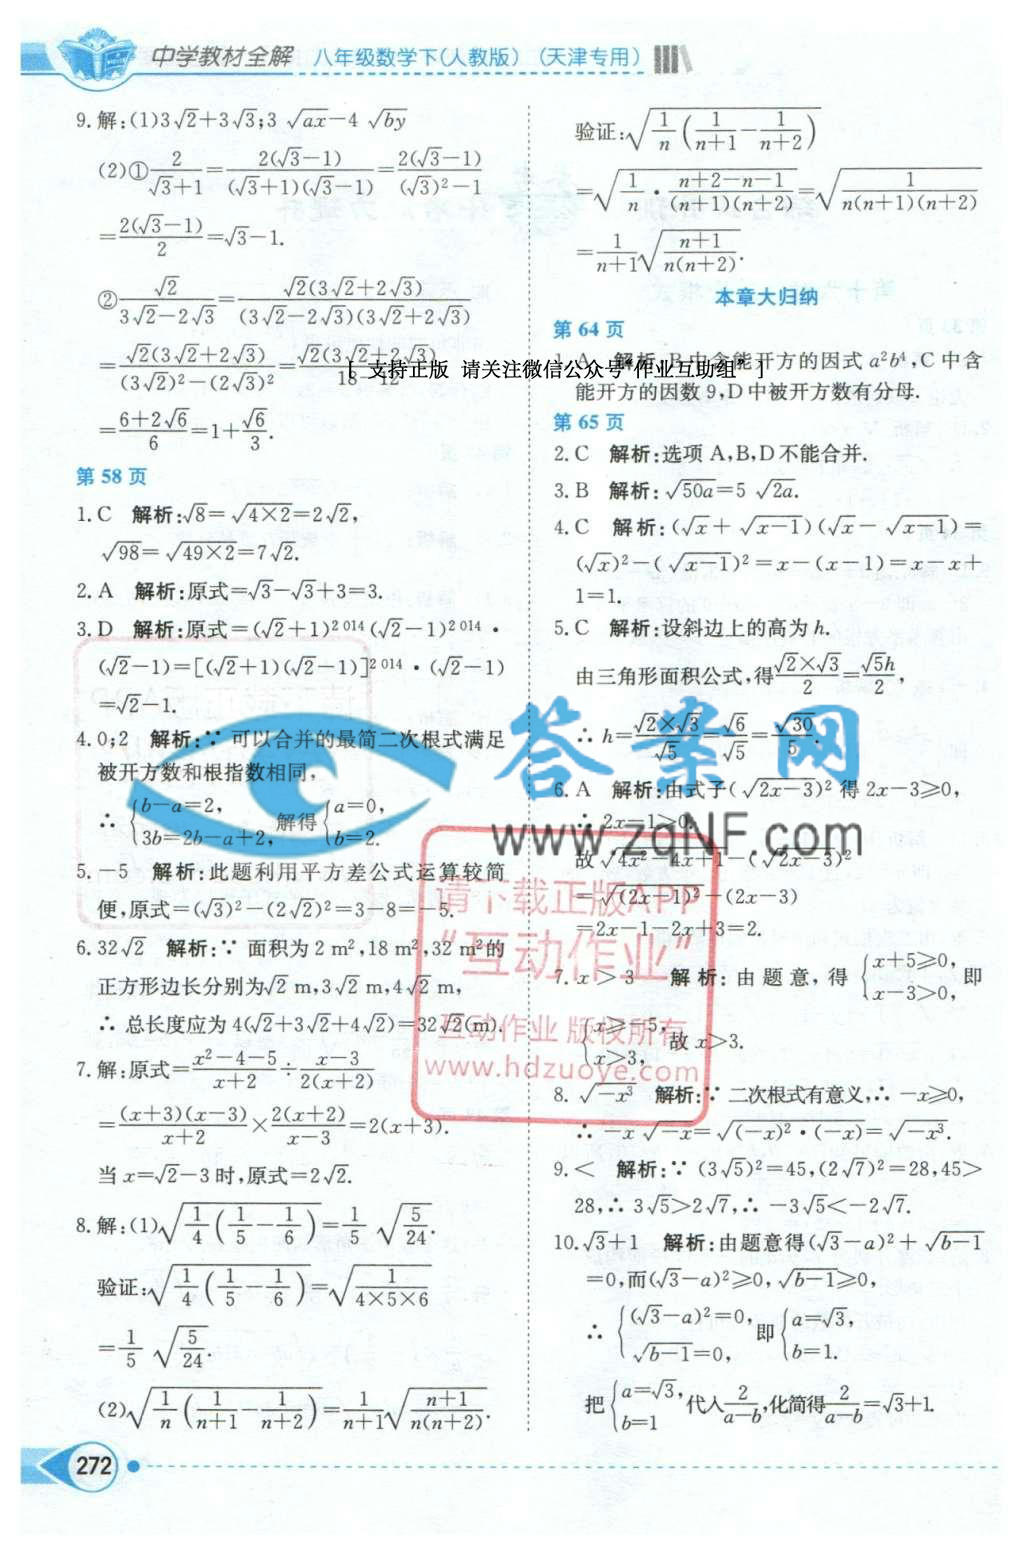 中学教材全解 八年级数学下(人教版) (天津专用)
9.解:(1)3√2+3√3;3√ax-4√by
(2)①2/(√3+1)=2(√3-1)/((√3+1)(√3-1))=2(√3-1)/((√3)²-1)
=2(√3-1)/2=√3-1.
②√2/(3√2-2√3)=√2(3√2+2√3)/((3√2-2√3)(3√2+2√3))
=√2(3√2+2√3)/((3√2)²-(2√3)²)=√2(3√2+2√3)/(18-12)
=(6+2√6)/6=1+√6/3.
第 58 页
1.C 解析:√8=√(4×2)=2√2,
√98=√(49×2)=7√2.
2.A 解析:原式=√3-√3+3=3.
3.D 解析:原式=(√2+1)²⁰¹⁴(√2-1)²⁰¹⁴·
(√2-1)=[(√2+1)(√2-1)]²⁰¹⁴·(√2-1)
=√2-1.
4.0;2 解析:∵ 可以合并的最简二次根式满足
被开方数和根指数相同,
∴ {b-a=2, 3b=2b-a+2, 解得{a=0, b=2.
5.-5 解析:此题利用平方差公式运算较简
便,原式=(√3)²-(2√2)²=3-8=-5.
6.32√2 解析:∵ 面积为2 m²,18 m²,32 m²的
正方形边长分别为√2 m,3√2 m,4√2 m,
∴ 总长度应为4(√2+3√2+4√2)=32√2(m).
7.解:原式=(x²-4-5)/(x+2)÷(x-3)/(2(x+2))
=((x+3)(x-3))/(x+2)×(2(x+2))/(x-3)=2(x+3).
当x=√2-3时,原式=2√2.
8.解:(1)√(1/4(1/5-1/6))=1/5√(5/24).
验证:√(1/4(1/5-1/6))=√(1/(4×5×6))
=1/5√(5/24).
(2)√(1/n(1/(n+1)-1/(n+2)))=1/(n+1)√((n+1)/(n(n+2))).
272
验证:√(1/n(1/(n+1)-1/(n+2)))
=√(1/n·(n+2-n-1)/((n+1)(n+2)))=√(1/(n(n+1)(n+2)))
=1/(n+1)√((n+1)/(n(n+2))).
本章大归纳
第 64 页
1.A 解析:B中含能开方的因式a²b⁴,C中含
[ 支持正版 请关注微信公众号"作业互助组" ]
能开方的因数9,D中被开方数有分母.
第 65 页
2.C 解析:选项A,B,D不能合并.
3.B 解析:√50a=5√2a.
4.C 解析:(√x+√(x-1))(√x-√(x-1))=
(√x)²-(√(x-1))²=x-(x-1)=x-x+
1=1.
5.C 解析:设斜边上的高为h.
由三角形面积公式,得(√2×√3)/2=√5h/2,
∴ h=(√2×√3)/√5=√6/√5=√30/5.
6.A 解析:由式子(√(2x-3))²得2x-3≥0,
∴ 2x-1>0,
故√(4x²-4x+1)-(√(2x-3))²
=√((2x-1)²)-(2x-3)
=2x-1-2x+3=2.
7.x>3 解析:由题意,得{x+5≥0, x-3>0, 即
{x≥-5, x>3, 故x>3.
8.√(-x³) 解析:∵ 二次根式有意义,∴ -x≥0,
∴ -x√(-x)=√((-x)²·(-x))=√(-x³).
9.< 解析:∵ (3√5)²=45,(2√7)²=28,45>
28,∴ 3√5>2√7,∴ -3√5<-2√7.
10.√3+1 解析:由题意得(√3-a)²+√(b-1)
=0,而(√3-a)²≥0,√(b-1)≥0,
∴ {(√3-a)²=0, √(b-1)=0, 即{a=√3, b=1.
把{a=√3, b=1 代入2/(a-b),化简得2/(a-b)=√3+1.
答案网
www.zqNF.com
请下载正版APP
"互动作业"
互动作业 版权所有
www.hdzuoye.com